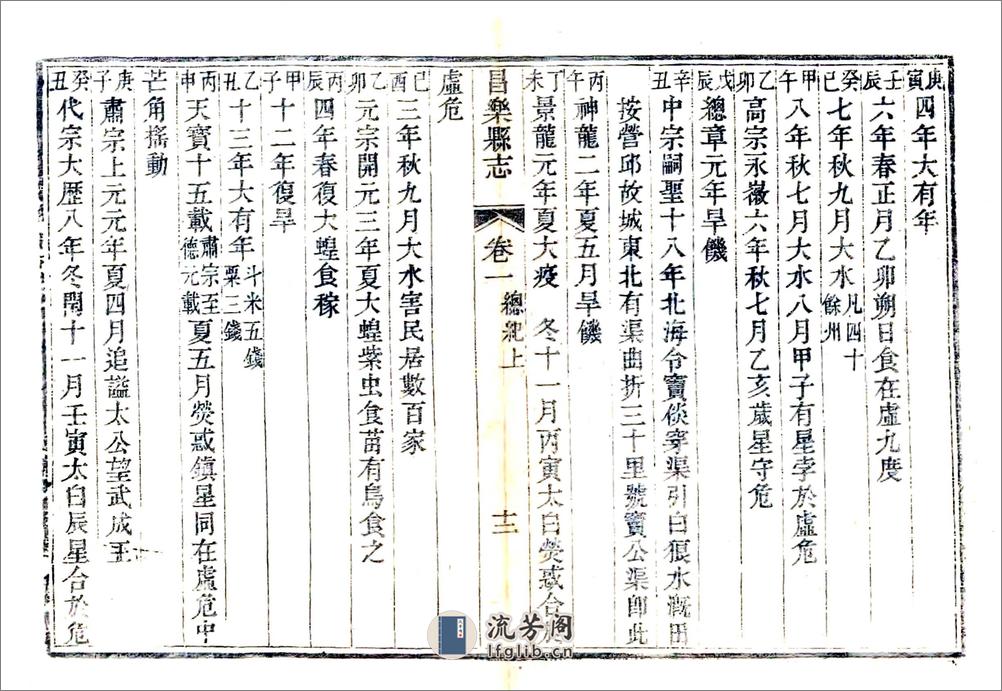 庚寅 四年大有年
壬辰 六年春正月乙卯朔日食在虛九度
癸巳 七年秋九月大水凡四十餘州
甲午 八年秋七月大水八月甲子有星孛於虛危
乙卯 高宗永徽六年秋七月乙亥歲星守危
戊辰 總章元年旱饑
辛丑 中宗嗣聖十八年北海令竇倓穿渠引白狼水溉田
按營邱故城東北有渠曲折三十里號竇公渠即此
丙午 神龍二年夏五月旱饑
丁未 景龍元年夏大疫 冬十一月丙寅太白熒惑合於
昌樂縣志 卷一 總紀上 十二
虛危
己酉 三年秋九月大水害民居數百家
乙卯 元宗開元三年夏大蝗紫虫食苗有鳥食之
丙辰 四年春復大蝗食稼
甲子 十二年復旱
乙丑 十三年大有年斗米五錢粟三錢
丙申 天寶十五載肅宗至德元載夏五月熒惑鎮星同在虛危中
芒角搖動
庚子 肅宗上元元年夏四月追謚太公望武成王
癸丑 代宗大歷八年冬閏十一月壬寅太白辰星合於危
流芳阁
lfglib.cn